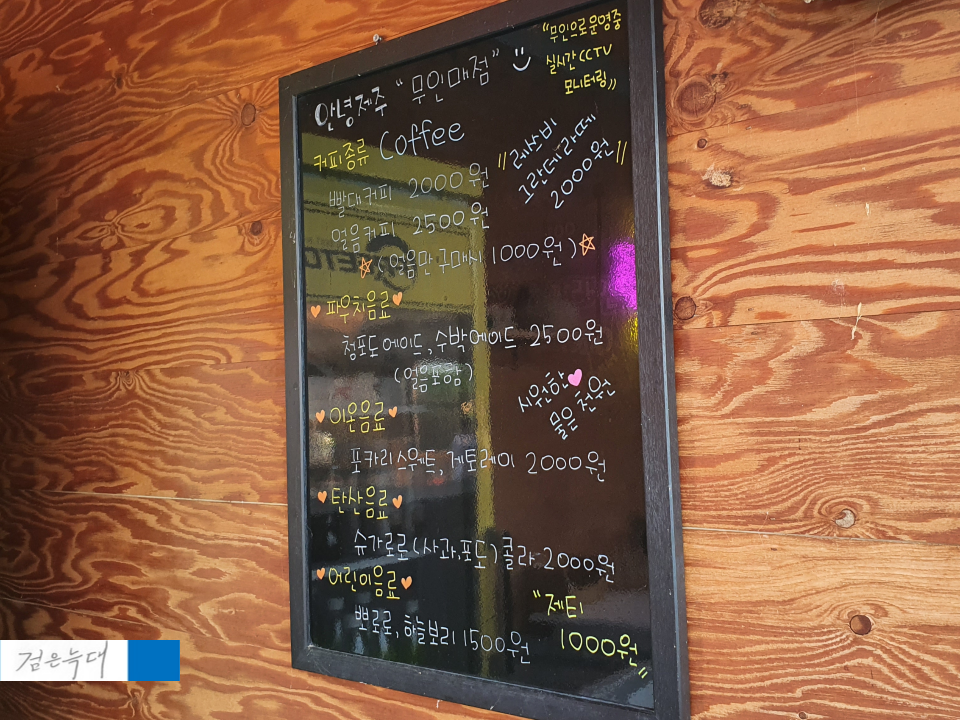 안녕제주 "무인매점"
"무인으로운영중
실시간 CCTV
모니터링"
커피종류 Coffee
"레쓰비
그란데라떼
2000원"
빨대커피 2000원
얼음커피 2500원
(얼음만 구매시 1000원)
파우치음료
청포도에이드, 수박에이드 2500원
(얼음포함)
시원한
물은 천원
이온음료
포카리스웨트, 게토레이 2000원
탄산음료
슈가로로(사과,포도) 콜라 2000원
어린이음료
뽀로로, 하늘보리 1500원
"제티
1000원"
검은늑대